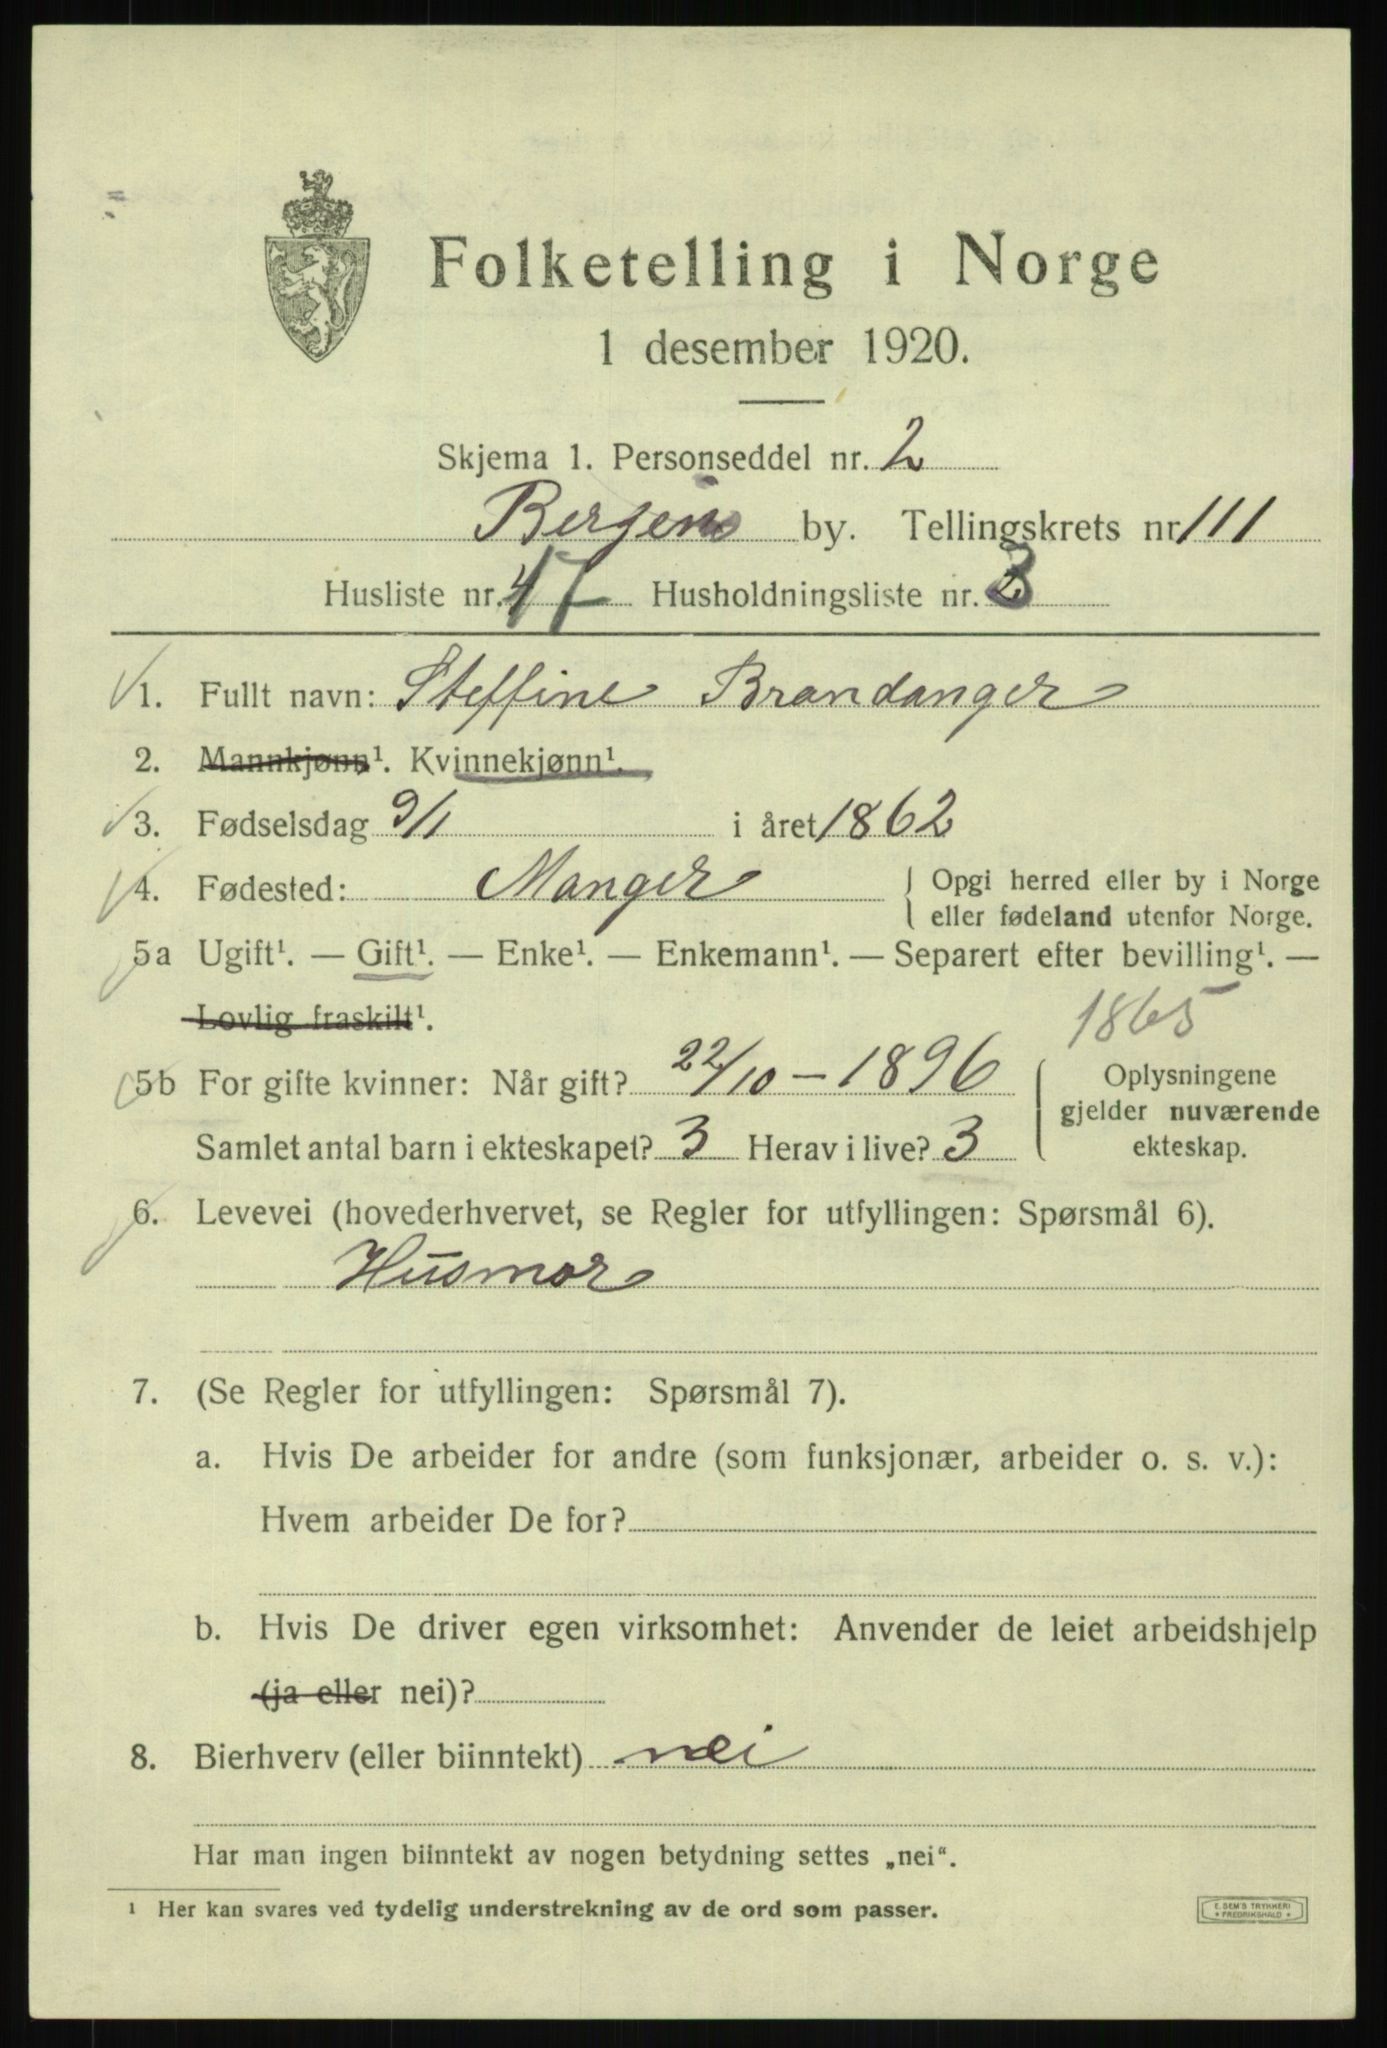 Folketelling i Norge
1 desember 1920.
Skjema 1. Personseddel nr. 2
Bergens by. Tellingskrets nr. 111
Husliste nr. 47 Husholdningsliste nr. 3
1. Fullt navn: Steffine Brandanger
2. Mannkjønn¹. Kvinnekjønn¹.
3. Fødselsdag 9/1 i året 1862
4. Fødested: Manger { Opgi herred eller by i Norge
eller fødeland utenfor Norge.
5a Ugift¹. — Gift¹. — Enke¹. — Enkemann¹. — Separert efter bevilling¹. —
Lovlig fraskilt¹.
1865
5b For gifte kvinner: Når gift? 22/10 – 1896 { Oplysningene
gjelder nuværende
Samlet antal barn i ekteskapet? 3 Herav i live? 3 ekteskap.
6. Levevei (hovederhvervet, se Regler for utfyllingen: Spørsmål 6).
Husmor
7. (Se Regler for utfyllingen: Spørsmål 7).
a. Hvis De arbeider for andre (som funksjonær, arbeider o. s. v.):
Hvem arbeider De for?
b. Hvis De driver egen virksomhet: Anvender de leiet arbeidshjelp
(ja eller nei)?
8. Bierhverv (eller biinntekt) nei
Har man ingen biinntekt av nogen betydning settes „nei".
¹ Her kan svares ved tydelig understrekning av de ord som passer.
E. SEM'S TRYKKERI
* FREDRIKSHALD *